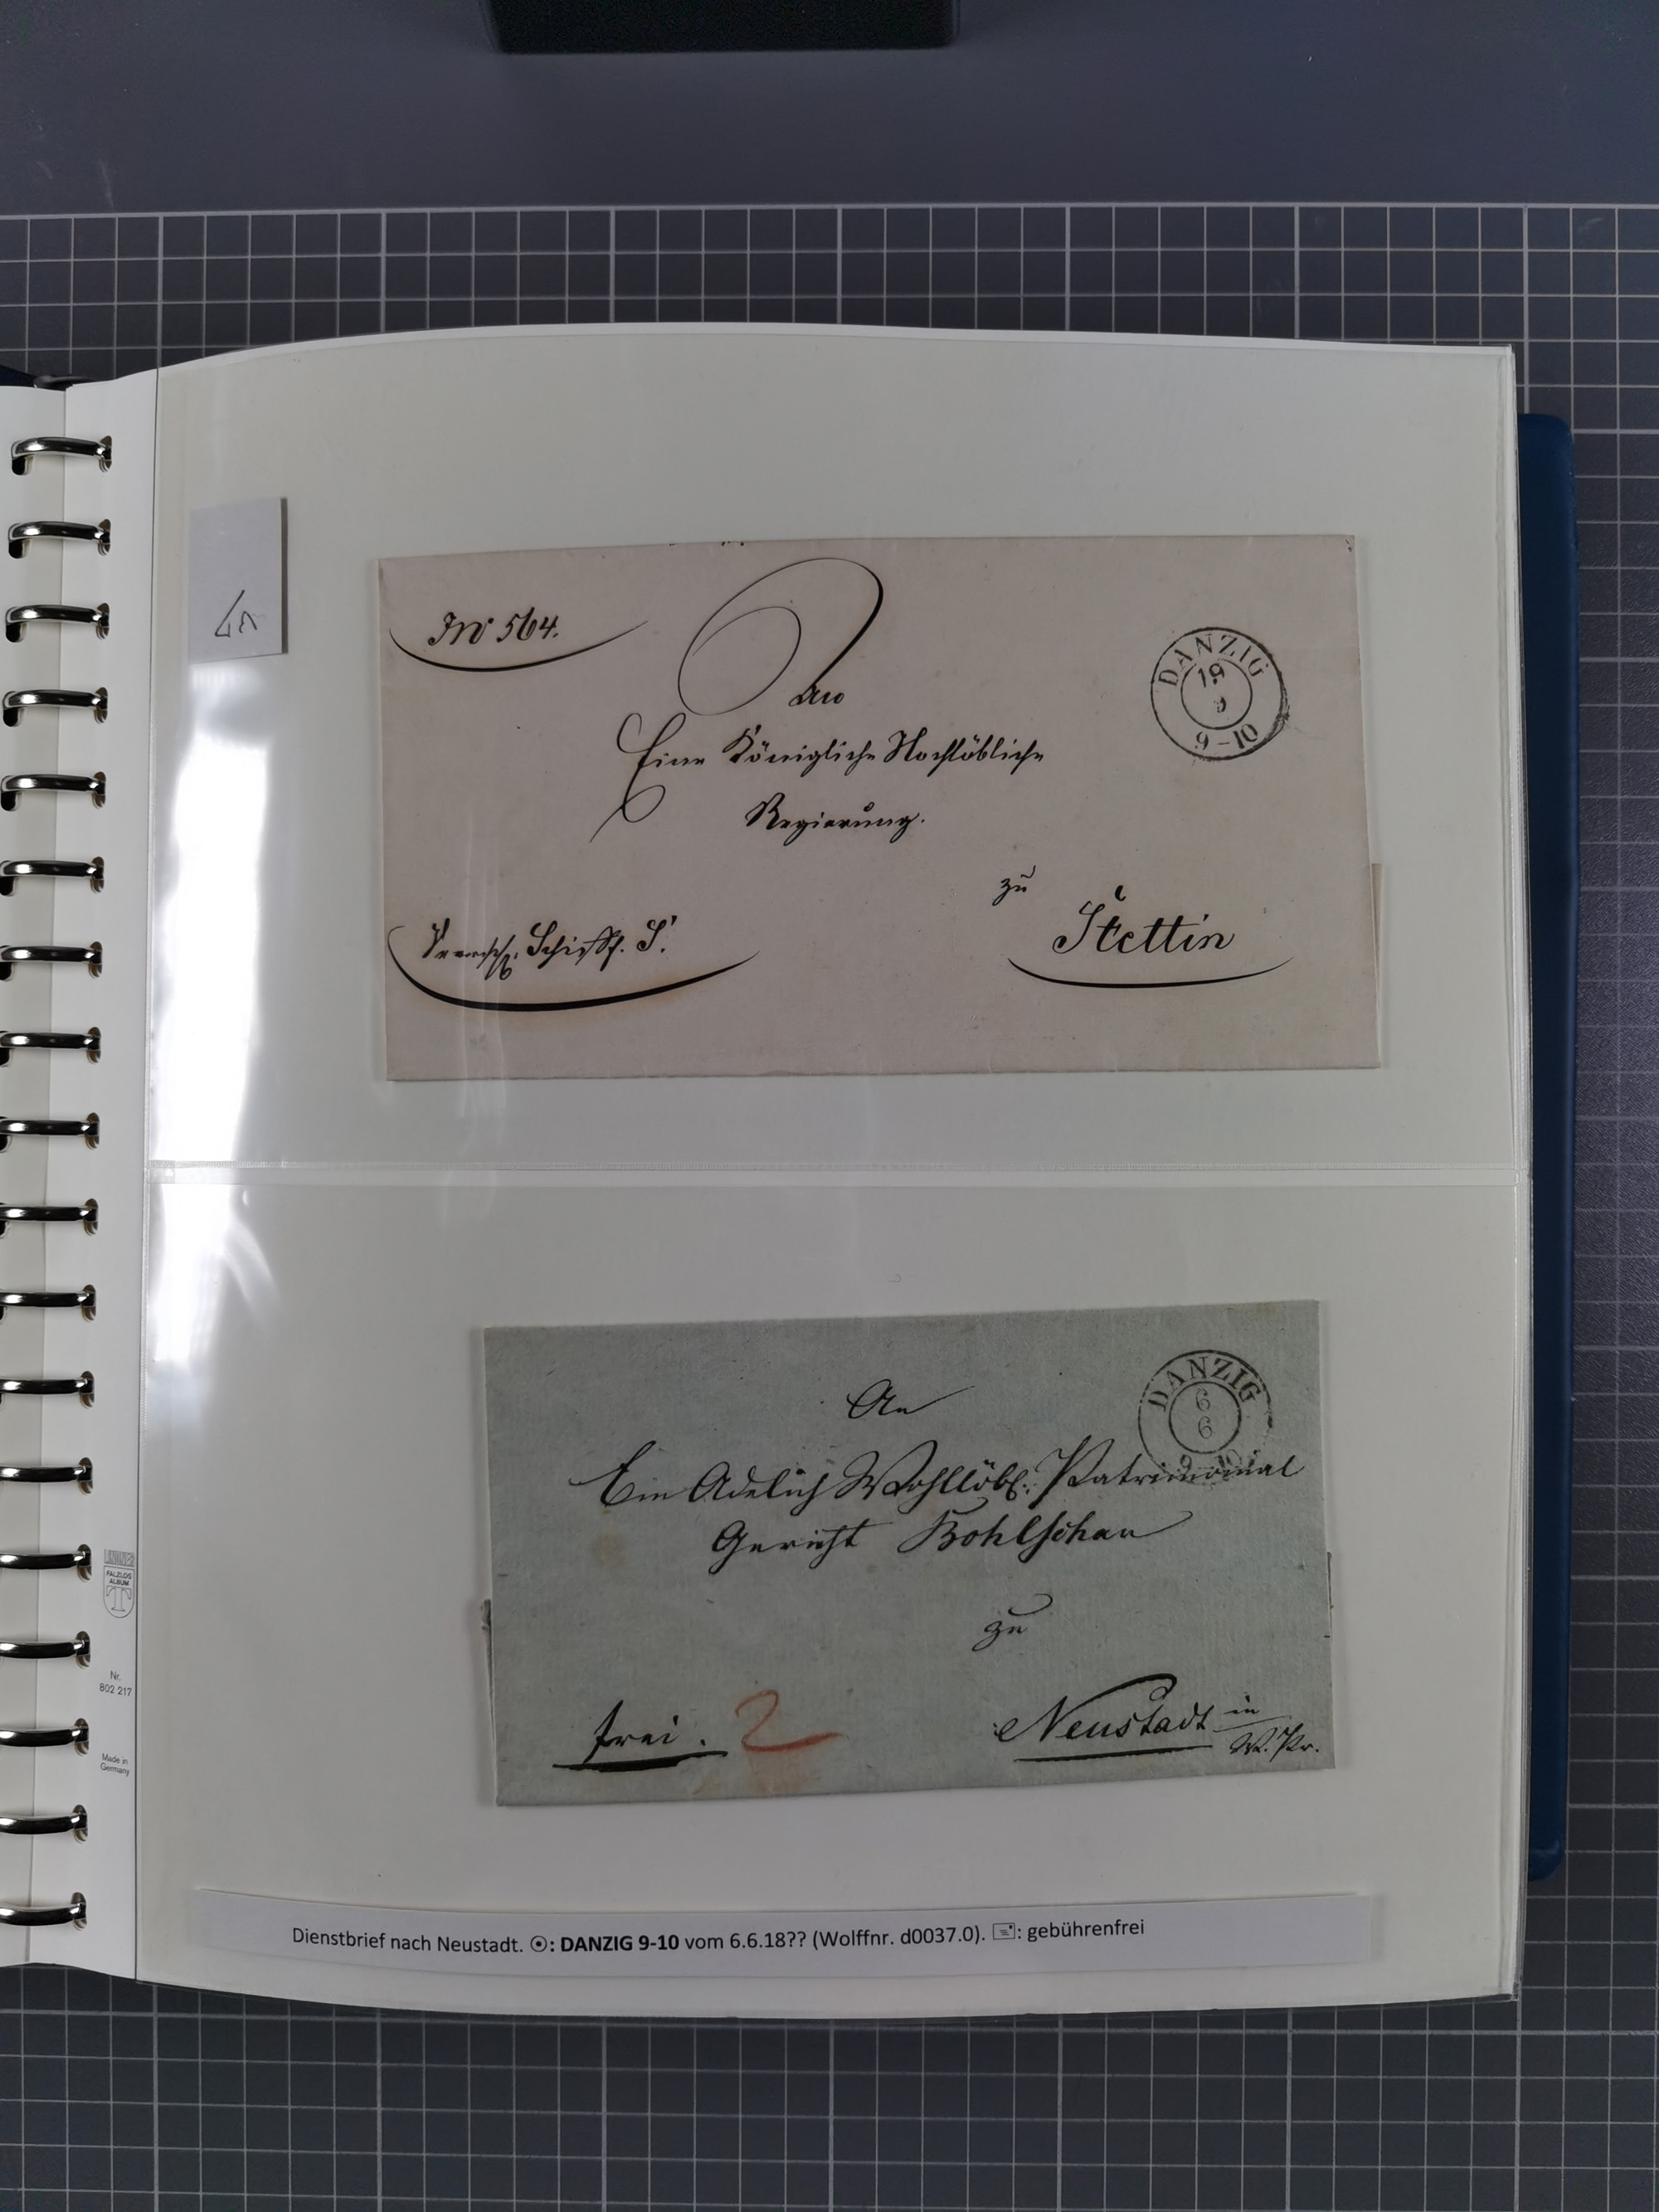 No 564.
An
Eine Königliche Hochlöbliche
Regierung.
zu
Stettin
Schifff. S.
DANZIG
19
9
9-10
An
Ein Adelich Wohllöbl: Patrimonial
Gericht Bohlschau
zu
Neustadt in
W. Pr.
frei. 2
DANZIG
6
6
LINDNER
FALZLOS
ALBUM
T
Nr.
802 217
Made in
Germany
Dienstbrief nach Neustadt. ⦿: DANZIG 9-10 vom 6.6.18?? (Wolffnr. d0037.0). 🖃: gebührenfrei